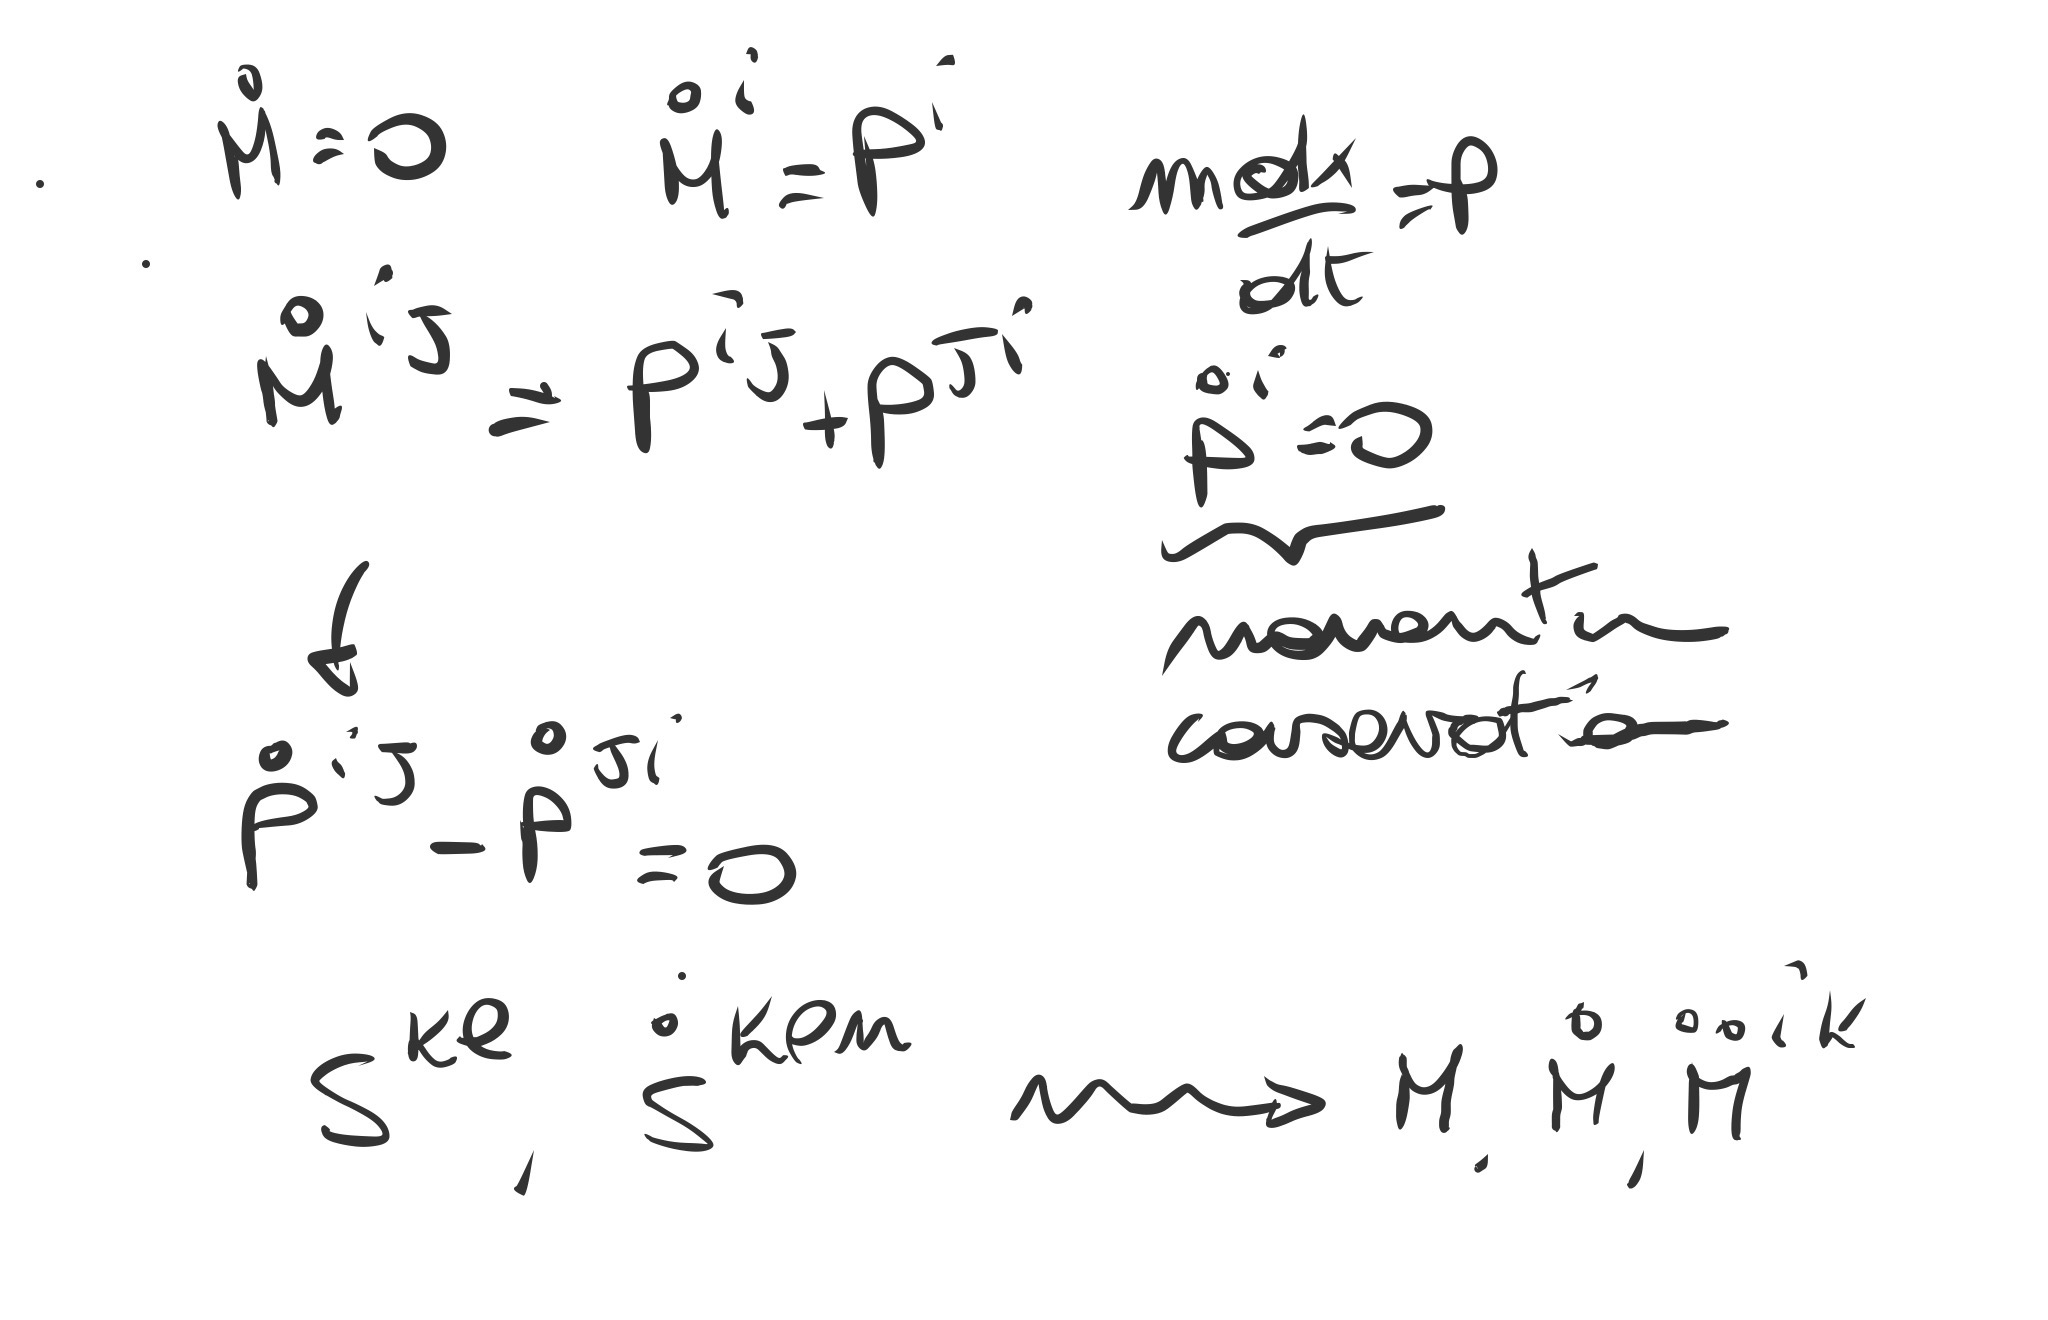 Ṁ = 0   Ṁⁱ = Pⁱ   m dx/dt = P
Ṁⁱʲ = Pⁱʲ + Pʲⁱ   Ṗⁱ = 0
momentum
conservation
Ṗⁱʲ - Ṗʲⁱ = 0
Sᵏˡ, Ṡᵏˡᵐ → M, Ṁ, M̈ⁱᵏ